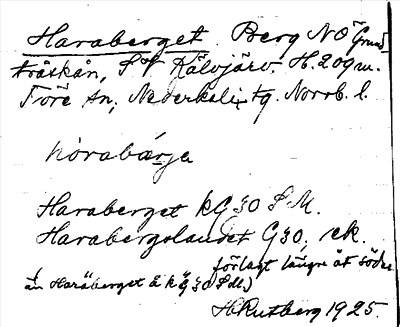 Haraberget. Berg NÖ Grund
träskån, SV Kälvjärv. H. 209 m.
Töre sn, Nederkalix tg. Norrb. l.
hòrabárja
Haraberget kG 30 SM.
Harabergslandet G 30, rek.
förlagt längre åt söder
än Haraberget å k G 30 SM)
H Rutberg 1925.